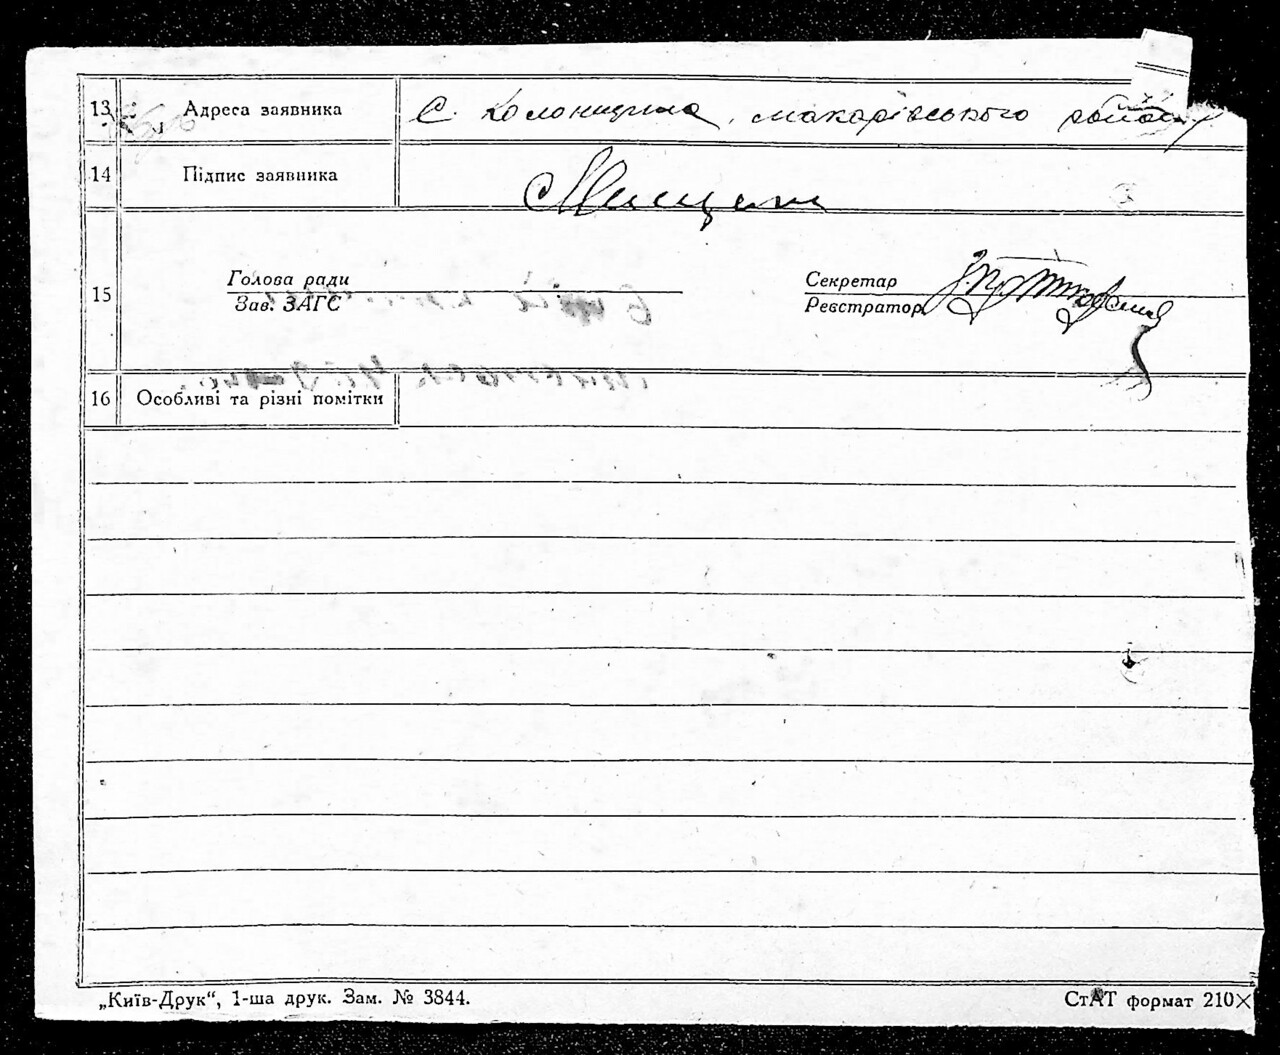 13 Адреса заявника С. Колонщина, макарівського району
14 Підпис заявника
15 Голова ради Секретар
Зав. ЗАГС Реєстратор
16 Особливі та різні помітки
„Київ-Друк“, 1-ша друк. Зам. № 3844. СтАТ формат 210×